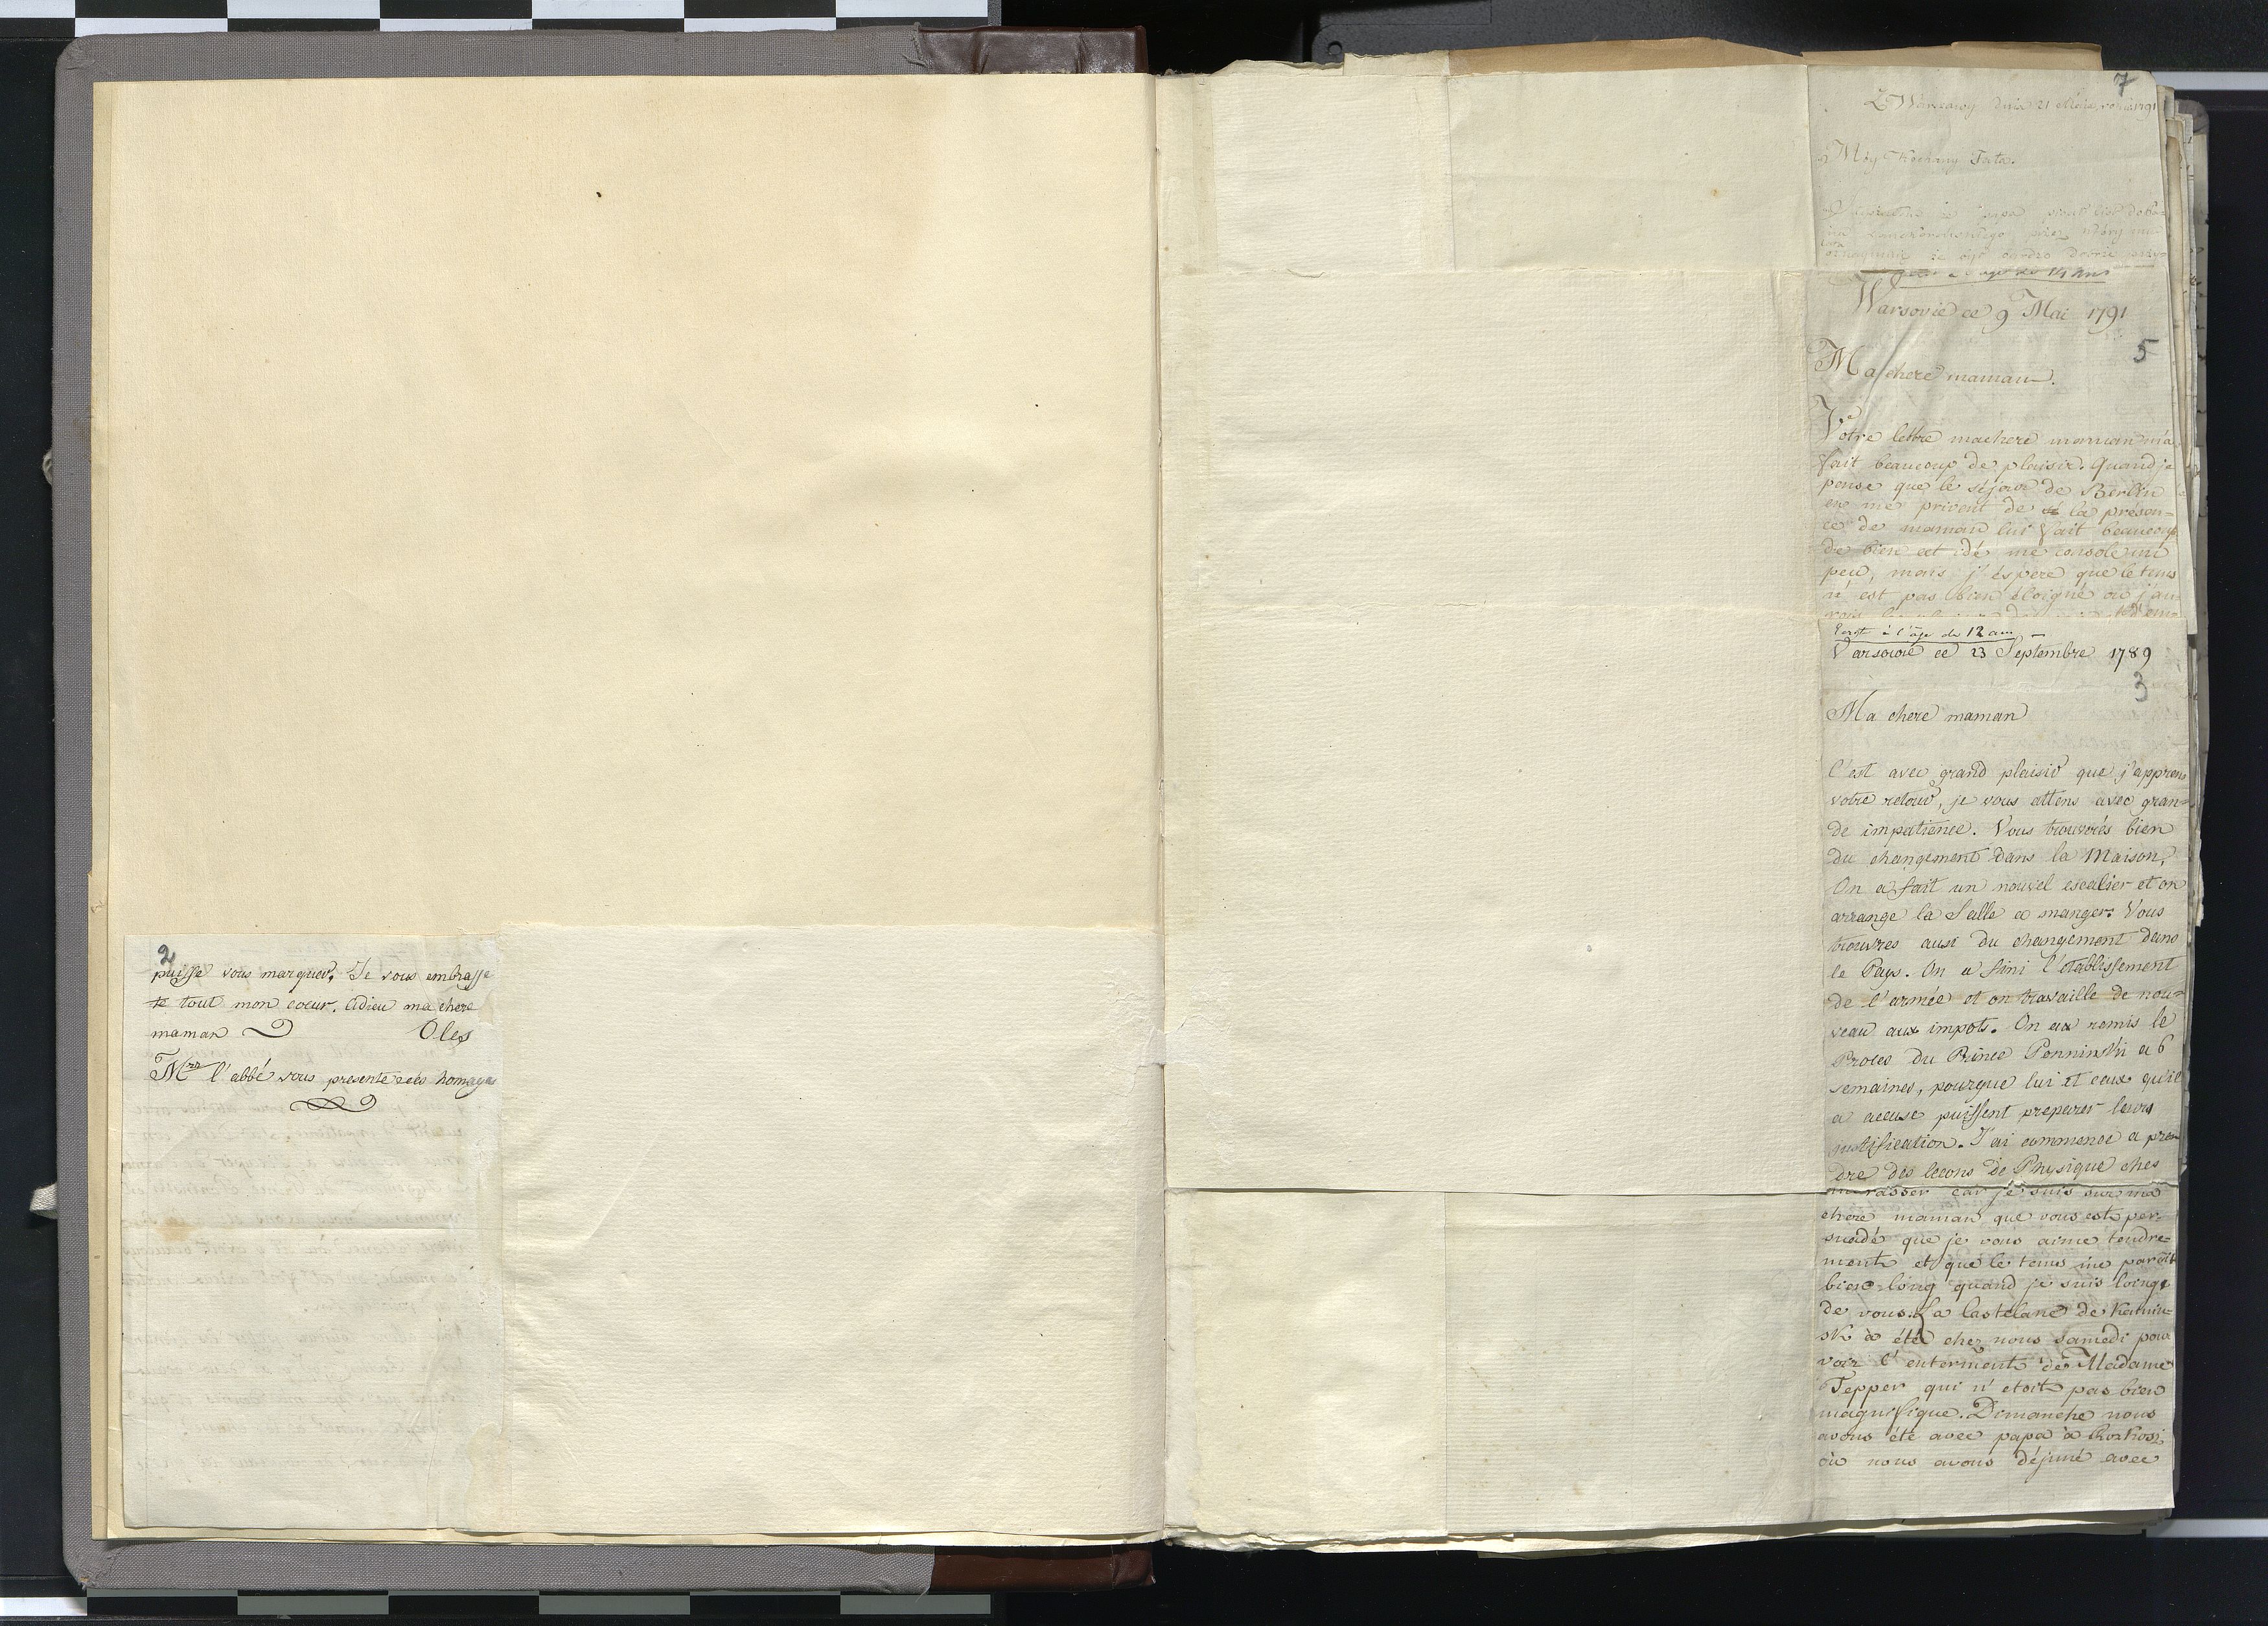 2
puisse vous marquer, Je vous embrasse
te tout mon coeur. Adieu ma chere
maman Oles
Mr l'abbé vous presente ses homages
7
Z Warszawy dnia 21 Maia, roku 1791
Móy Kochany Tata.
papa
l'age de 14 Ans
Warsovie ce 9 Mai 1791
5
Ma chere maman.
Votre lettre machere maman m'a
fait beaucoup de plaisir. Quand je
pense que le séjour de Berlin
en me privent de la presen=
ce de maman lui fait beaucoup
de bien cet idé me console un
peu, mais j'éspere que le tems
n'est pas bien eloigné ou j'au=
Ecrit à l'âge de 12 ans
Varsovie ce 23 Septembre 1789
3
Ma chere maman
C'est avec grand plaisir que j'apprens
votre retour, je vous attens avec gran=
de impatience. Vous trouvorés bien
du changement dans la Maison,
On a fait un nouvel escalier et on
arrange la Salle a manger. Vous
trouvres ausi du changement dans
le Pays. On a fini l'etablissement
de l'armée et on travaille de nou=
veau aux impots. On aa remis le
Proces du Prince Ponninski a 6
semaines, pourque lui et ceux qu'il
a accuse puissent preparer leurs
justification. J'ai commence a pren
dre des lecons de Physique ches
rasser car je suis sur ma
chere maman que vous este per=
suadé que je vous aime tendre=
ment et que le tems me paroît
bien long quand je suis loinge
de vous. La Castelane de Kamin=
sk à été chez nous samedi pour
voir l'enterment de Madame
Tepper qui n'etoit pas bien
magnifique. Dimanche nous
avons été avec papa à
où nous avons déjuné avec